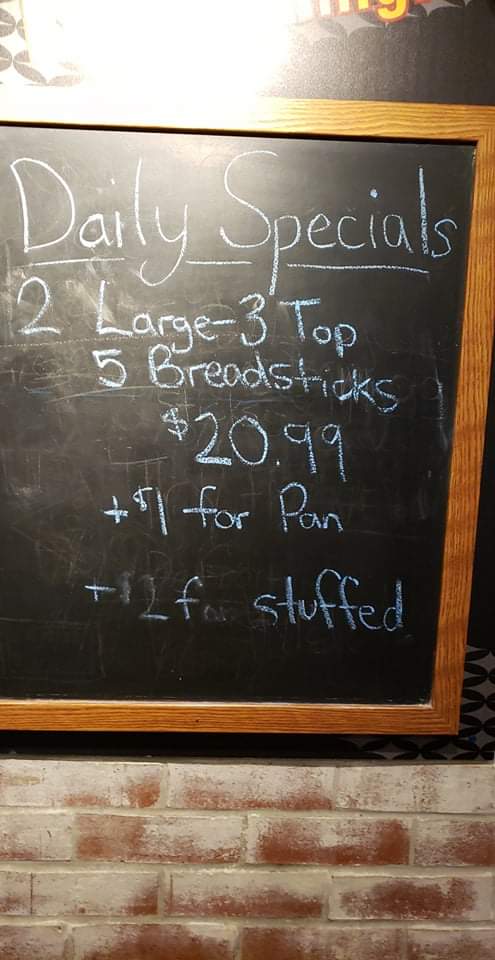 Daily Specials
2 Large-3 Top
5 Breadsticks
$20.99
+$1 for Pan
+$2 for stuffed